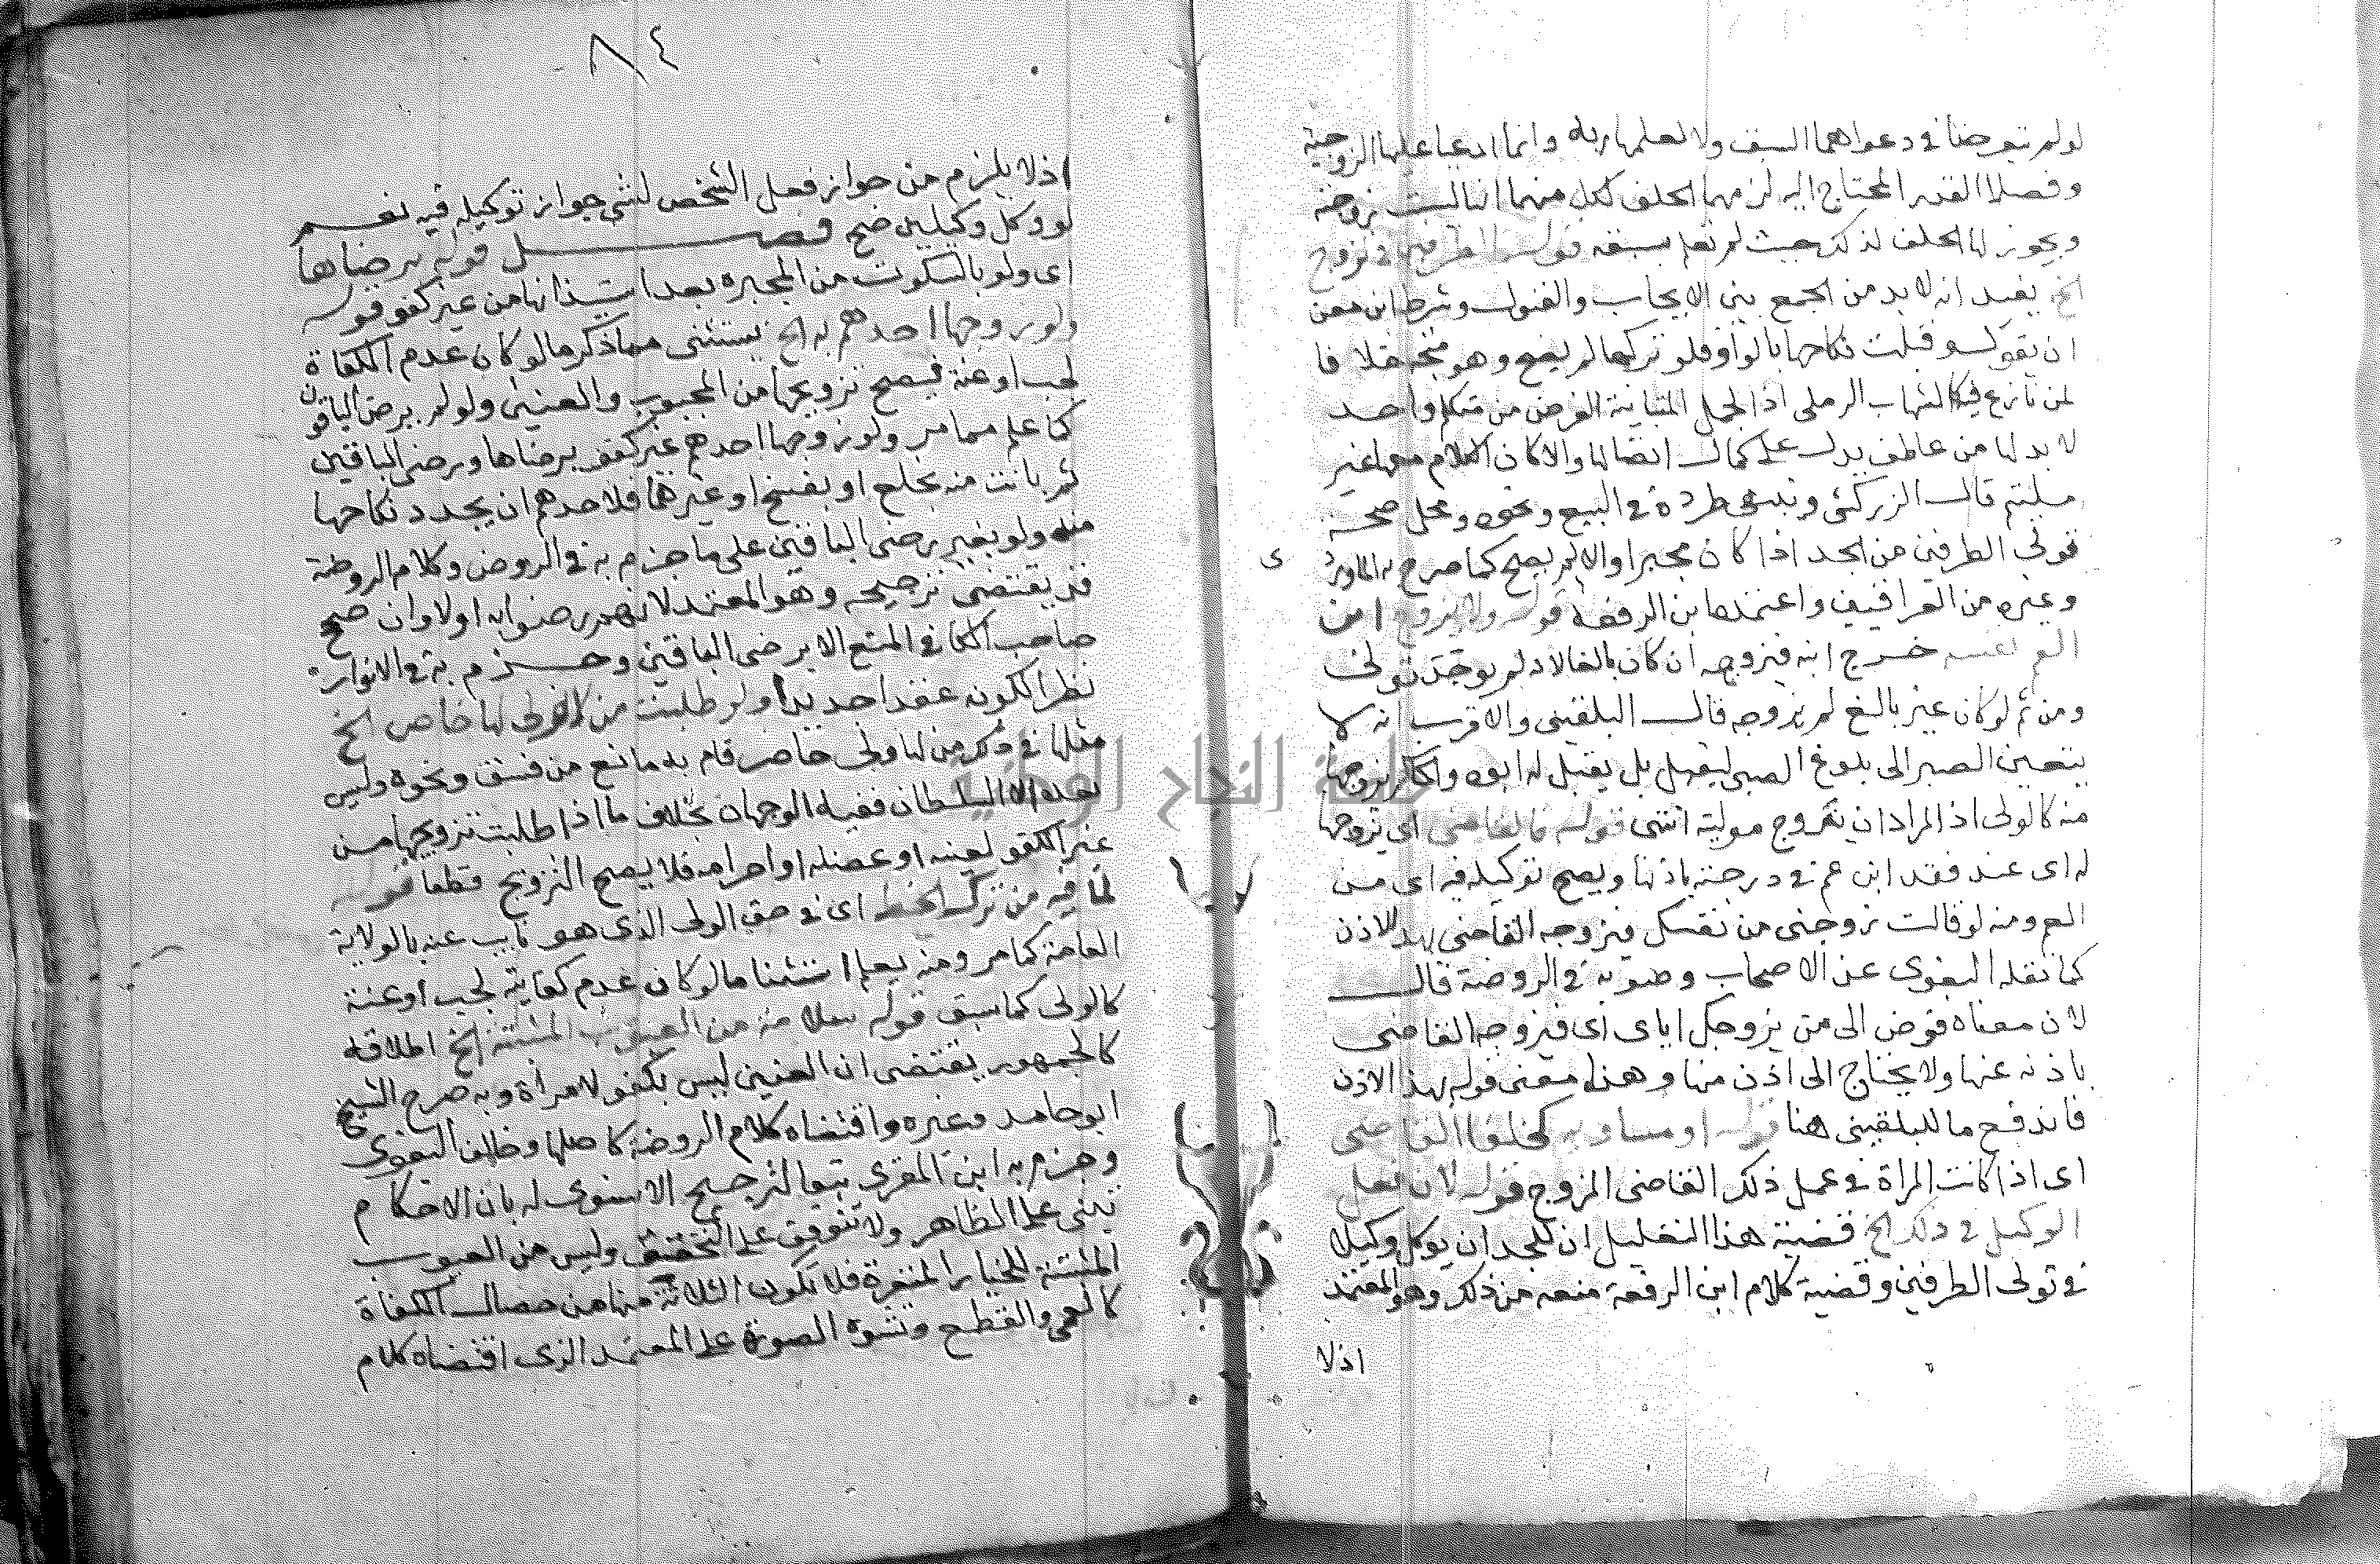 لو لم تتعرضا في دعواهما السبق ولا لعلمها به وانما ادعيا عليها الزوجية
وفصلا القدر المحتاج اليه لزمها الحلف لكل منهما انها ليست زوجته
ويجوز لها الحلف لذلك حيث لم تعلم سبقه قوله الطرفين في تزوج
الخ يفيد انه لا بد من الجمع بين الايجاب والقبول وشرط ابن معن
ان يقول وقبلت نكاحها بالواو فلو تركها لم يصح وهو متجه خلافا
لمن نازع فيه كالشهاب الرملي اذ الجمل المتباينة الغرض من متكلم واحد
لا بد لها من عاطف يدل على كمال اتصالها والا كان الكلام معها غير
ملتئم قال الزركشي وينبغي طرده في البيع ونحوه ومحل صحة
تولي الطرفين من الجد اذا كان مجبرا والا لم يصح كما صرح به الماوردي
وغيره من العراقيين واعتمده ابن الرفعة قوله ولا يزوج ابن
العم نفسه خرج ابنه فيزوجه ان كان بالغا لانه لم يوجد تولي
ومن ثم لو كان غير بالغ لم يزوجه قال البلقيني والاقرب انه لا
يتعين الصبر الى بلوغ الصبي ليقبل بل يقبل له ابوه والحاكم يزوجها
منه كالولي اذ المراد ان يتزوج موليته انثى قوله فالقاضي اي يزوجها
له اي عند فقد ابن عم في درجته باذنها ويصح توكيله فيه اي من
العم ومنه لو قالت زوجني من نفسك فيزوجه القاضي بهذا الاذن
كما نقله البغوي عن الاصحاب وصوبه في الروضة قال
لان معناه فوض الى من يزوجك اياي اي فيزوجه القاضي
باذنه عنها ولا يحتاج الى اذن منها وهذا معنى قوله بهذا الاذن
فاندفع ما للبلقيني هنا قوله او مساويه كخلفا القاضي
اي اذا كانت المراة في عمل ذلك القاضي المزوج قوله لان فعل
الوكيل في ذلك الخ قضية هذا التعليل ان للجد ان يوكل وكيلا
في تولي الطرفين وقضية كلام ابن الرفعة منعه من ذلك وهو المعتمد
اذ لا
٨٤
اذ لا يلزم من جواز فعل الشخص لشي جواز توكيله فيه نعم
لو وكل وكيلين صح فصل قوله برضاها
اي ولو بالسكوت من المجبره بعد استيذانها من غير كفو قوله
ولو زوجها احدهم به الخ يستثنى مما ذكر ما لو كان عدم الكفاة
لجب او عنة فيصح تزويجها من المجبوب والعنين ولو لم يرض الباقون
كما علم مما مر ولو زوجها احدهم غير كفو برضاها ورضى الباقين
ثم بانت منه بخلع او بفسخ او غيرهما فلاحدهم ان يجدد نكاحها
منه ولو بغير رضى الباقين على ما جزم به في الروض وكلام الروضة
قد يقتضي ترجيحه وهو المعتمد لانهم رضوا به اولا وان صحح
صاحب الكافي المنع الا برضى الباقين وجزم به في الانوار
نظرا لكونه عقدا جديدا ولو طلبت من لا ولي لها خاص الخ
مثلها في ذكر من لها ولي حاضر قام به مانع من فسق ونحوه وليس
بعده الا السلطان ففيه الوجهان بخلاف ما اذا طلبت تزويجها من
غير الكفو لغيبته او عضله او احرامه فلا يصح التزويج قطعا قوله
لما فيه من ترك الحظ اي في حق الولي الذي هو نايب عنه بالولاية
العامة كما مر ومنه يعلم استثنا ما لو كان عدم كفايته لجب او عنة
كالولي كما سبق قوله سلامة من العيوب المثبتة الخ اطلاقه
كالجمهور يقتضي ان العنين ليس بكفو لامرأة وبه صرح الشيخ
ابو حامد وغيره واقتضاه كلام الروضة كاصلها وخالف البغوي
وجزم به ابن المقري تبعا لترجيح الاسنوي له بان الاحكام
تبنى على الظاهر ولا تتوقف على التحقيق وليس من العيوب
المثبتة للخيار المنفرة فلا تكون الثلاثة منها من خصال الكفاة
كالعمى والقطع وتشوه الصورة على المعتمد الذي اقتضاه كلام
جامعة النجاح الوطنية